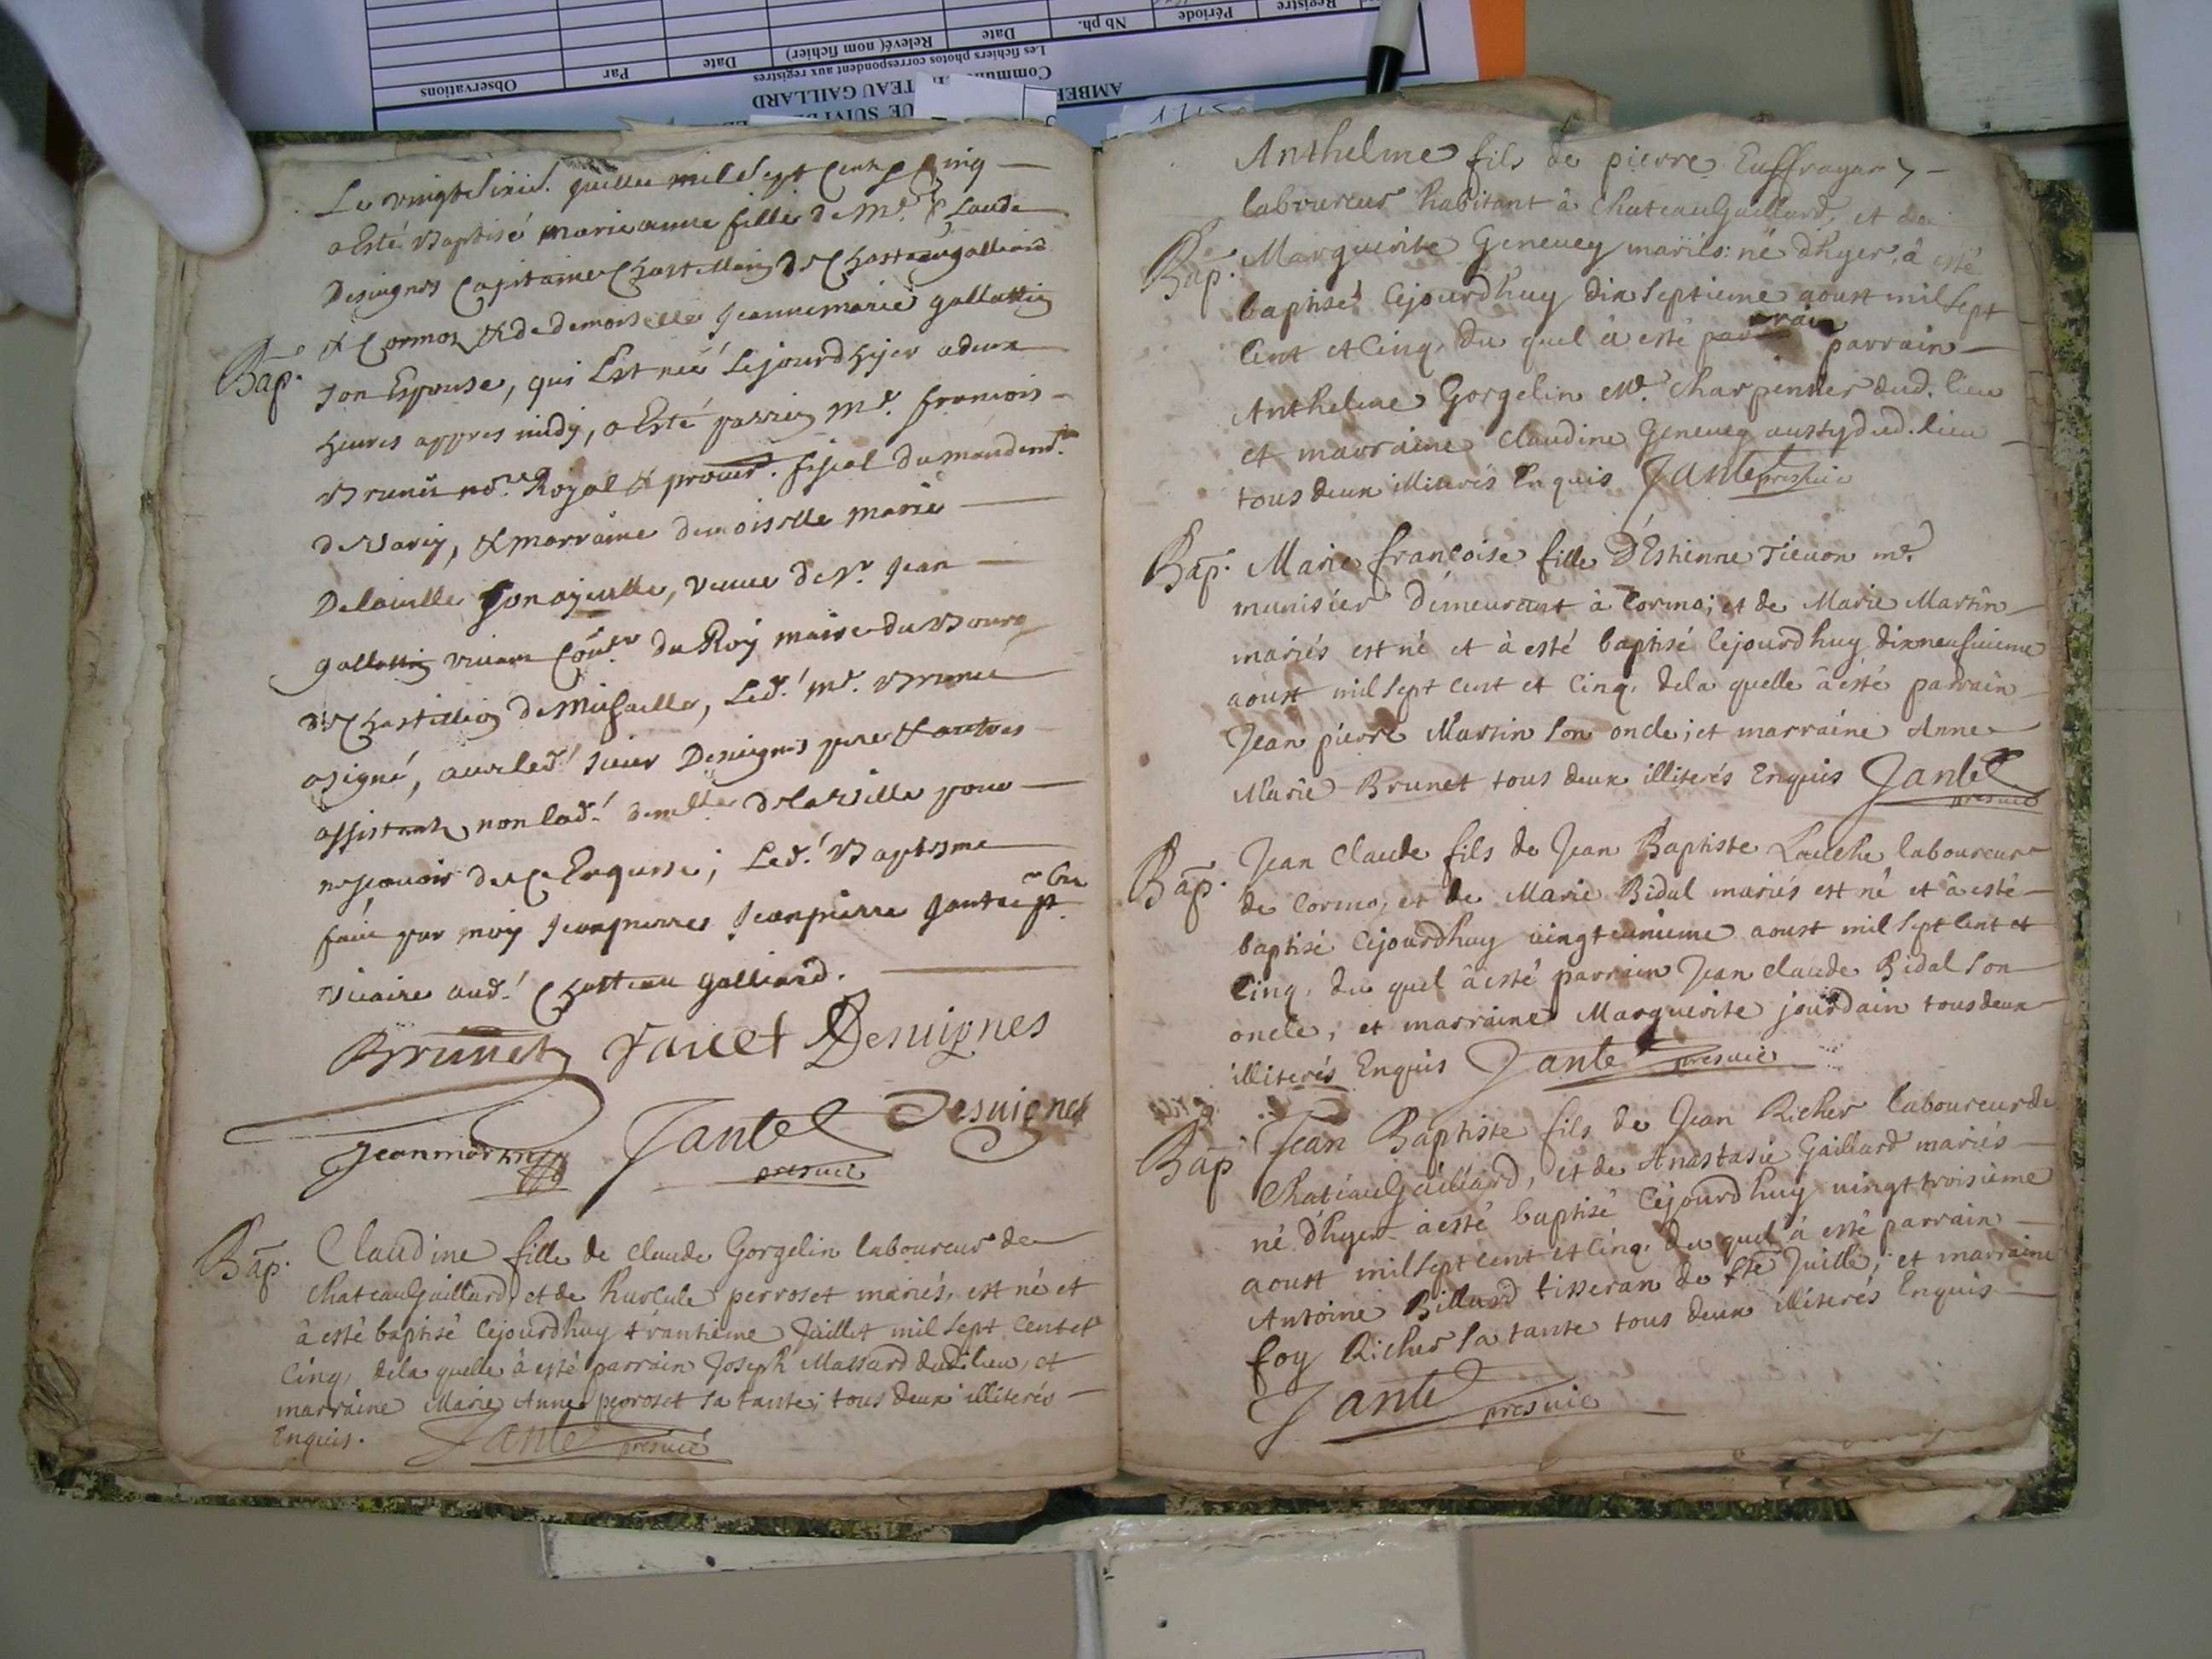 Observations
Par
Date
Relevé( nom fichier)
Date
Nb ph.
Période
Registre
Les fichiers photos correspondent aux registres
Commun
TEAU GAILLARD
AMBER
UE SUIVI DE
Le vingt Sixie. Juillet mil Sept Cent & Cinq
a Esté Baptisé marie anne fille de Me. Claude
Desuignes Capitaine Chastellain de Chasteaugalliard
& Cormoz & de demoiselle Jeannemarie gallattin
Bap. Son Espouse, qui Est née Lejourdhyer a deux
heures appres midy, a Esté parrin Me. francois
Brunet no.re Royal & procur. fiscal du mandemt.
de Varey, & marraine demoiselle marie
Delaville Son ayeulle, veuve de Sr. Jean
gallattin vivant Con.er du Roy maire du Bourg
de Chastillion de Michaille, Led.t me. Brunet
a signé, avec led.t sieur Desuignes pere & autres
assistants non lad.te dem.lle delaville pour
ne scavoir de ce Enquise; Led.t Baptesme
faict par moy Jeanpierre Jantet ptre.
vicaire aud.t Chatteau galliard.
Brunet Favet Desuignes
Jeanmartin Jantet Desuignes
pres vic
Bap. Claudine fille de Claude Gorgelin laboureur de
Chateaugaillard, et de hurcule perroset mariés, est né et
à esté baptisé cejourdhuy trantieme Juillet mil sept cent et
cinq, dela quelle à esté parrain Joseph Massard dud. lieu, et
marraine Marie Anne perroset sa tante; tous deux illiterés
Enquis. Jantet pres vic
Anthelme fils de pierre Euffrayar
laboureur habitant à Chateaugaillard, et de
Bap. Marguerite Geneuey mariés: né d'hyer, à esté
baptisé cejourdhuy dix septieme aoust mil sept
cent et cinq, du quel à esté parrain parrain
Anthelme Gorgelin Me. Charpentier dud. lieu
et marraine Claudine Geneuey aussy dud. lieu
tous deux illiterés Enquis Jantet pres vic
Bap. Marie françoise fille d'Estienne Tieuon me.
munisier demeurant à Cormo; et de Marie Martin
mariés est né et à esté baptisé cejourdhuy dixneufuieme
aoust mil sept cent et cinq, dela quelle à esté parrain
Jean pierre Martin son oncle; et marraine Anne
Marie Brunet tous deux illiterés Enquis Jantet
pres vic
Bap. Jean Claude fils de Jean Baptiste Louche laboureur
de Cormo, et de Marie Bidal mariés est né et à esté
baptisé cejourdhuy vingt unieme aoust mil sept cent et
cinq, du quel à esté parrain Jean Claude Bidal son
oncle, et marraine Marguerite jourdain tous deux
illiterés Enquis Jantet pres vic
Bap Jean Baptiste fils de Jean Richer laboureur de
Chateaugaillard, et de Anastasie Gaillard mariés
né d'hyer à esté baptisé cejourdhuy vingt troisieme
aoust mil sept cent et cinq, du quel à esté parrain
Antoine Billard tisseran de Ste Juille; et marraine
foy Richer sa tante tous deux illiterés Enquis
Jantet pres vic